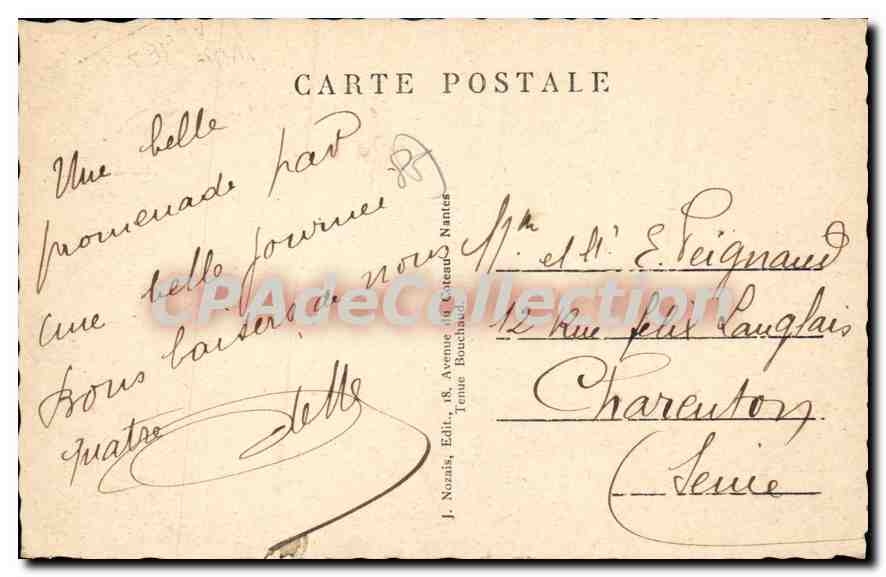 CARTE POSTALE
Une belle
promenade par
une belle journee
Bons baisers de nous
quatre
J. Nozais, Edit., 18, Avenue du Coteau - Nantes
Tenue Bouchaud.
et Mr E. Peignaud
12 Rue felix Langlais
Charenton
(Seine
CPAdeCollection